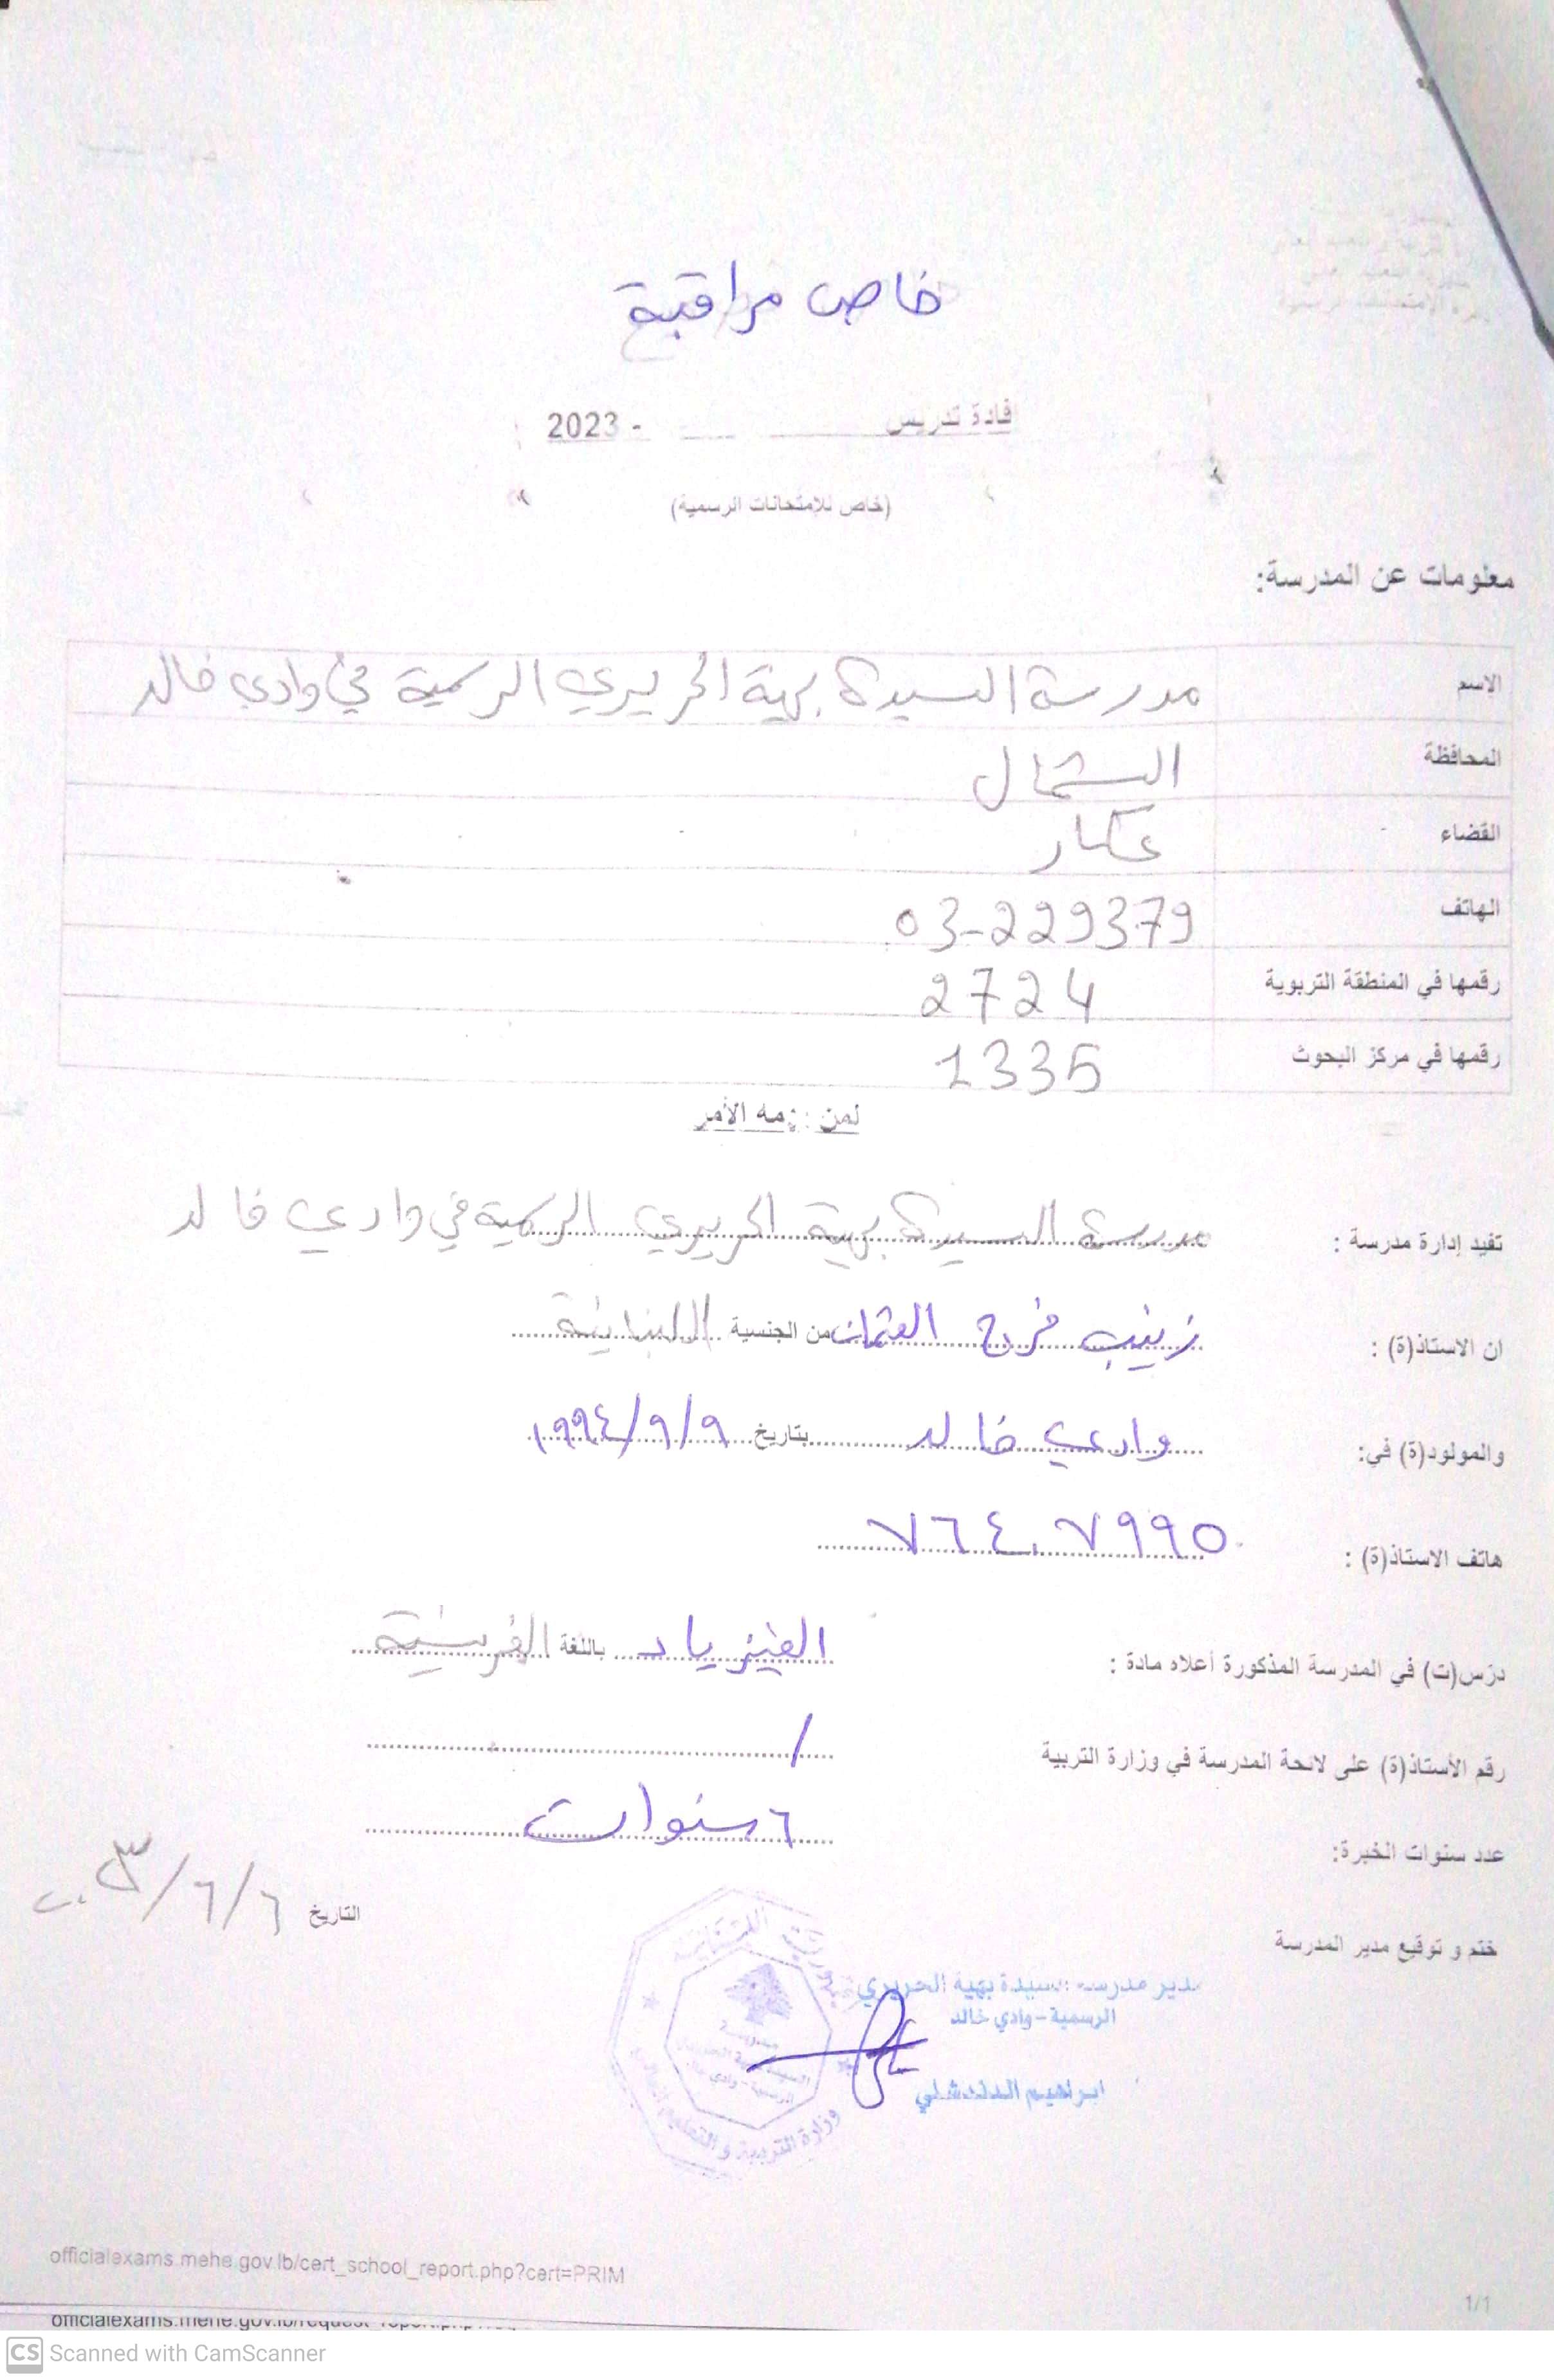 خاص مراقبة
فادة تدريس - 2023
(خاص للامتحانات الرسمية)
معلومات عن المدرسة:
الاسم مدرسة السيدة بهية الحريري الرسمية في وادي خالد
المحافظة الشمال
القضاء عكار
الهاتف 03-229379
رقمها في المنطقة التربوية 2724
رقمها في مركز البحوث 1335
لمن مه الأمر
تفيد إدارة مدرسة : مدرسة السيدة بهية الحريري الرسمية في وادي خالد
ان الاستاذ(ة) : زينب فرج العثمان من الجنسية اللبنانية
والمولود(ة) في: وادي خالد بتاريخ ٩/٩/١٩٩٤
هاتف الاستاذ(ة) : ٧٦٤٠٧٩٩٥
درّس(ت) في المدرسة المذكورة أعلاه مادة : الفيزياء باللغة الفرنسية
رقم الأستاذ(ة) على لائحة المدرسة في وزارة التربية /
عدد سنوات الخبرة: ٦ سنوات
التاريخ ٦/٦/٢٠٢٣
ختم و توقيع مدير المدرسة
مدير مدرسة السيدة بهية الحريري
الرسمية - وادي خالد
ابراهيم الدندشلي
وزارة التربية و التعليم العالي
officialexams.mehe.gov.lb/cert_school_report.php?cert=PRIM
1/1
CS Scanned with CamScanner